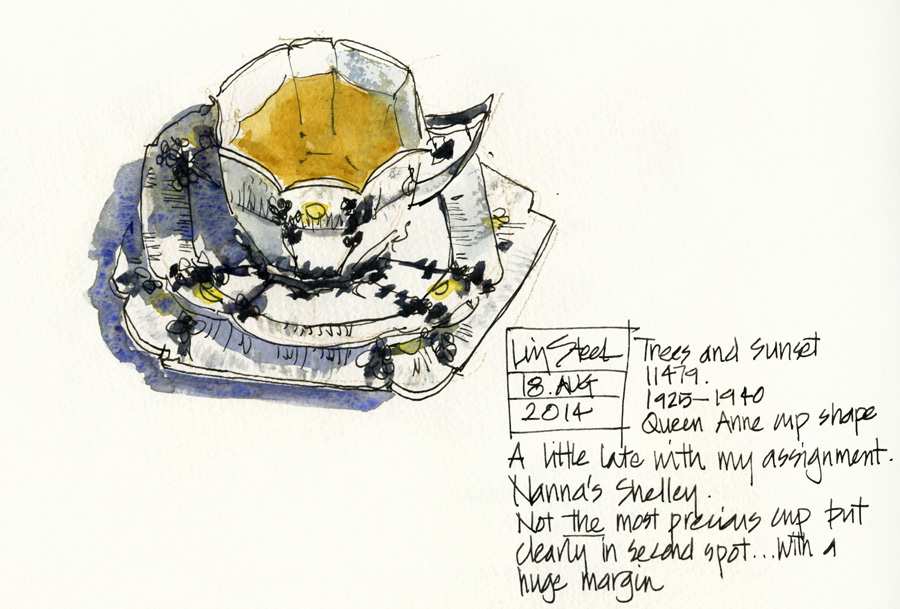 Liz Steel
18. AUG
2014
Trees and sunset
11479.
1925-1940
Queen Anne cup shape
A little late with my assignment.
Nanna's Shelley.
Not the most precious cup but
clearly in second spot...with a
huge margin